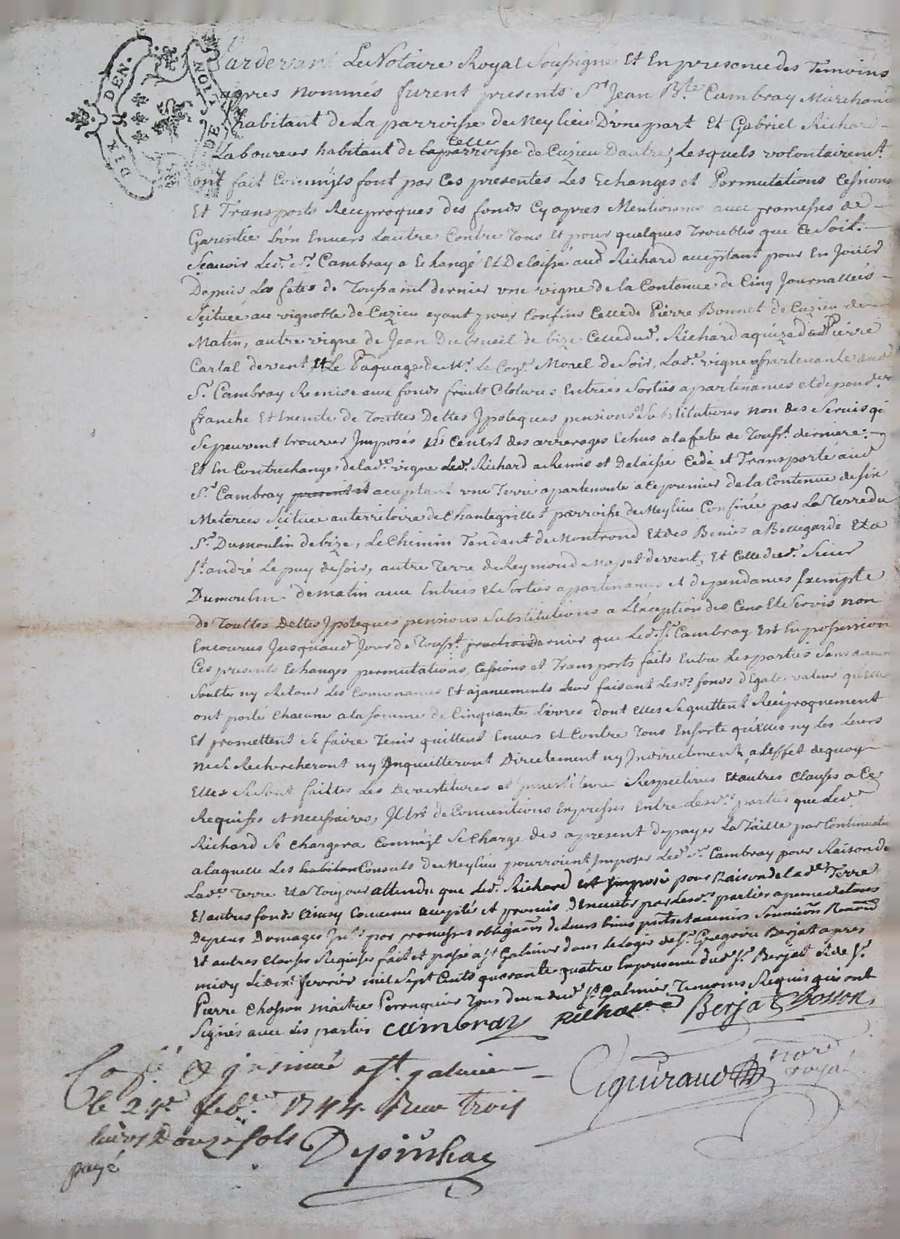 DIX DEN. LION DE
Pardevant Le Notaire Royal Soussigné Et En presance des Temoins
apres nommés furent presents Sr Jean Bte Cambray Marchand
habitant de La parroisse de Meylieu Dune part Et Gabriel Richard
Laboureur habitant de celle de Cuzieu Dautre, Lesquels volontairemt
ont fait Comme ils font par Ces presentes Les Echanges et Permutations Cessions
Et Transports Reciproques des fonds Cy apres Mentionnés avec promesses de
Garentie Lün Envers Lautre Contre Tous Et pour quelques Troubles que Ce Soit.
Scavoir Led. Sr. Cambray a Echangé Et Delaissé aud Richard acceptant pour En Jouir
Depuis Les fetes de Toussaint dernier vne vigne de la Contenue de Cinq Journallees
Scituée au vignoble de Cuzieu ayant pour Confins Celle de Pierre Bonnet de Cuzieu de
Matin, autre vigne de Jean Dubrueil de bize Celle dud. Richard aquize de Pierre
Cartal de vent Et Le Paquage de Mr. Le Morel de Soir, Lade. vigne appartenante aud
Sr. Cambray Remise aux fonds fruits Clotures Entrées Sorties apartenances et dependces
franche Et Exempte de Touttes Dettes Ypoteques pensions Substitutions non des Servis qi
Se peuvent trouver Imposés Et Cens Et des arrerages Echus a la fete de Touss. derniere
Et En Contrechange de lade. vigne Led. Richard a Remis et Delaissé Cedé et Transporté aud
Sr. Cambray acceptant vne Terre apartenante a Ce premier de la Contenue de Six
Meterees Scituée au territoire de Chantegrillet parroisse de Meylieu Confinée par La Terre du
Sr. Dumoulin de bize, Le Chemin Tendant de Montrond Et des a Bellegarde Et a
St. andré Le puy de Soir, autre Terre de Reymond de vent, Et Celle dud. Sieur
Dumoulin de matin aux Entrées Et Sorties apartenances et dependances Exempte
de Touttes Dettes Ypoteques pensions Substitutions a L'exception des Cens Et Servis non
Encourus Jusquau Jour de Touss. dernier que Led. Sr. Cambray Est En possession
Ces presents Echanges permutations, Cessions et Transports faits Entre Les parties Sans aucune
Soulte ny Retour Les Et Leur faisant Lesd. fonds d'Egale valeur quelles
ont porté Chacune a la Somme de Cinquante Livres dont Elles Se quittent Reciproquement
Et promettent Se faire Tenir quittent Envers Et Contre Tous Ensorte qu'elles ny les Leurs
Rechercheront ny Inquietteront Directement ny Indirectement, a L'Effet dequoy
Elles Se Sont faittes Les Devestitures et Respectives Et autres Clauses a Ce
Requises Et necessaires, Il Est de Conventions Expresses Entre Lesd. parties que Led.
Richard Se Chargera Comme il Se Charge des apresent de payer La Taille par
a laquelle Les Consuls de Meylieu pourroient Imposer Led. Sr. Cambray pour Raison de
Lade. Terre Et a Toujour attendu que Led. Richard est Imposé pour Raison de lade Terre
Et autres fonds Ainsy Convenu accepté et promis d'Executer par Lesd. parties a peine de tous
Depens Domages par promesses obligaôns de Leurs biens Renonôns
Et autres Clauses Requises fait et passé a St. Galmier dans le logis de Sr. Gregoire Berjat apres
midy Le fevrier mil Sept Cents quarante quatre En presence dud. Sr. Berjat Et de Sr.
Pierre Chosson maitre Perruquier Tous deux dud. St. Galmier Temoins Requis qui ont
Signés avec Les parties Cambray Richard Berjat Chosson
Guiraud Nore. Royal
Collé & jnsinué a St. galmier
le 24e. feb. 1744 Reçu trois
livres Douze Sols
payé